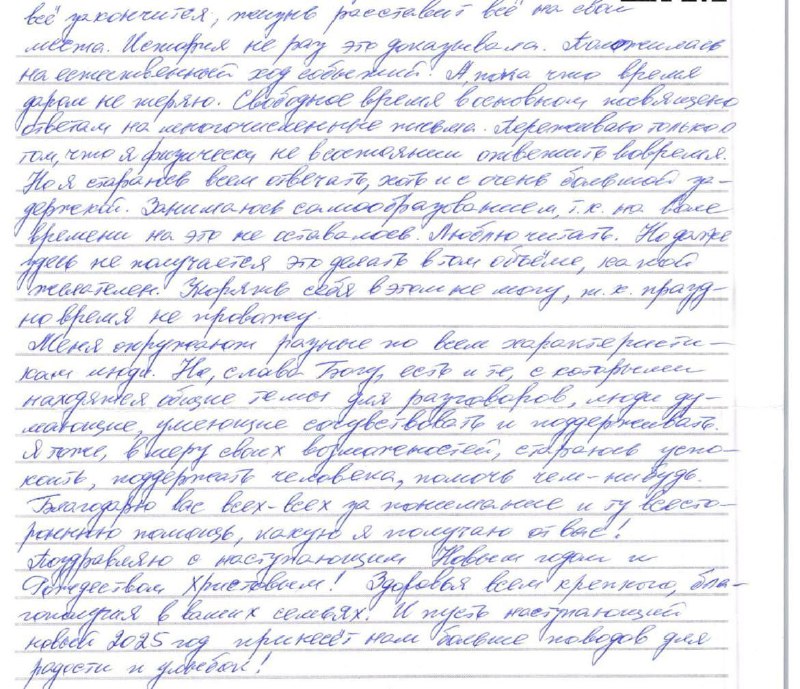 всё закончится, жизнь расставит всё на свои
места. История не раз это доказывала. Положилась
на естественный ход событий. А пока что время
даром не теряю. Свободное время в основном посвящено
ответам на многочисленные письма. Переживаю только о
том, что я физически не в состоянии ответить вовремя.
Но я стараюсь всем отвечать, хоть и с очень большой за-
держкой. Занимаюсь самообразованием, т.к. на воле
времени на это не оставалось. Люблю читать. Но даже
здесь не получается это делать в том объёме, какой
желателен. Укорять себя в этом не могу, т.к. празд-
но время не провожу.
Меня окружают разные по всем характеристи-
кам люди. Но, слава Богу, есть и те, с которыми
находятся общие темы для разговоров, люди ду-
мающие, умеющие сочувствовать и поддерживать.
Я тоже, в меру своих возможностей, стараюсь успо-
коить, поддержать человека, помочь чем-нибудь.
Благодарю вас всех-всех за понимание и ту всесто-
роннюю помощь, какую я получаю от вас!
Поздравляю с наступающим Новым годом и
Рождеством Христовым! Здоровья всем крепкого, бла-
гополучия в ваших семьях. И пусть наступающий
новый 2025 год принесёт нам больше поводов для
радости и улыбок!